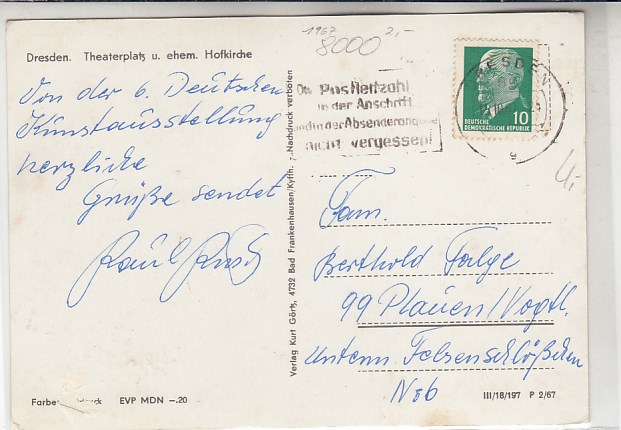 Dresden. Theaterplatz u. ehem. Hofkirche
Von der 6. Deutschen
Kunstausstellung
herzliche
Grüße sendet
Farbe
EVP MDN –.20
Verlag Kurt Görtz, 4732 Bad Frankenhausen/Kyffh. · Nachdruck verboten
1967
2,–
8000
Die Postleitzahl
in der Anschrift
und in der Absenderangabe
nicht vergessen!
DEUTSCHE
DEMOKRATISCHE REPUBLIK
10
4,-
Fam.
Berthold Falge
99 Plauen/Vogtl.
Unterm Felsenschlößchen
No6
III/18/197 P 2/67